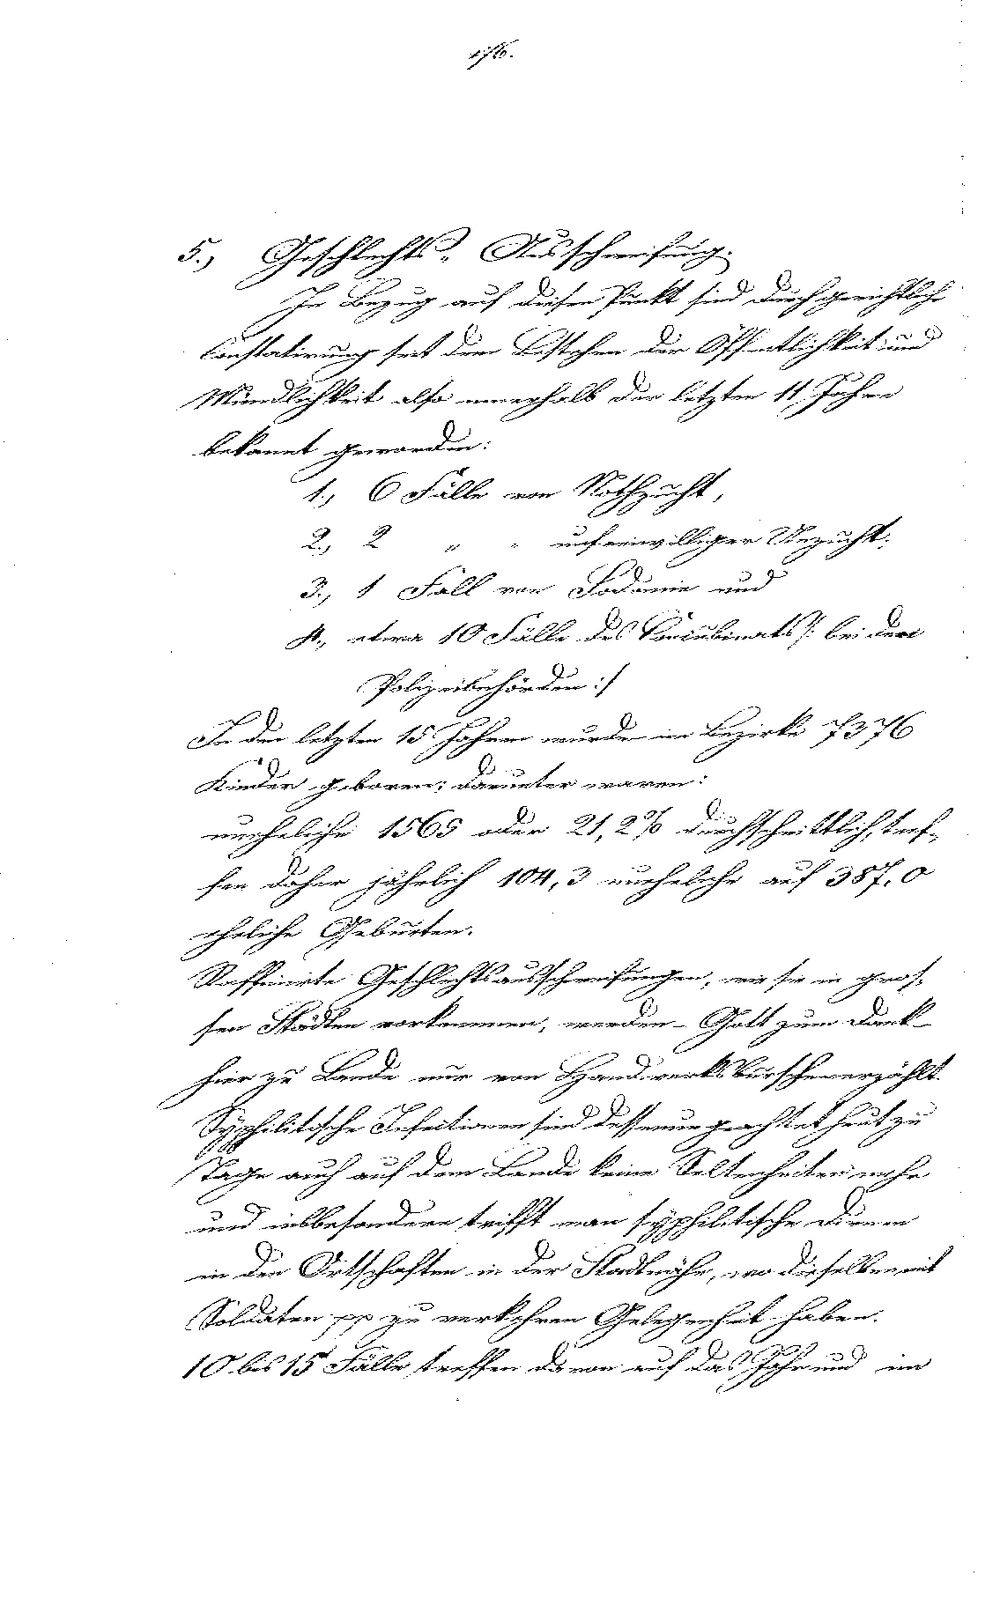 176.
5., Geschlechts-Ausschweifung.
In Bezug auf diesen Punkt sind durch gerichtliche
Constatirung seit dem Bestehen der Öffentlichkeit und
Mündlichkeit also innerhalb der letzten 11 Jahre
bekannt geworden:
1., 6 Fälle von Nothzucht,
2., 2 " " unfreiwilliger Unzucht,
3., 1 Fall von Sodomie und
4., etwa 10 Fälle des Concubinats /: bei den
Polizeibehörden :/
In den letzten 15 Jahren wurden im Bezirke 7376
Kinder geboren; darunter waren:
uneheliche 1565 oder 21,2% durchschnittlich, tref-
fen daher jährlich 104,3 uneheliche auf 387,0
eheliche Geburten.
Raffinirte Geschlechtsausschweifungen, wie sie in gros-
sen Städten vorkommen, werden - Gott zum Dank -
hier zu Lande nur von Handwerksburschen erzählt.
Syphilitische Infectionen sind dessenungeachtet heut zu
Tage auch auf dem Lande keine Seltenheiten mehr
und insbesondere trifft man syphilitische Dirnen
in den Ortschaften in der Stadtnähe, wo dieselben mit
Soldaten pp zu verkehren Gelegenheit haben.
10 bis 15 Fälle treffen davon auf das Jahr und im